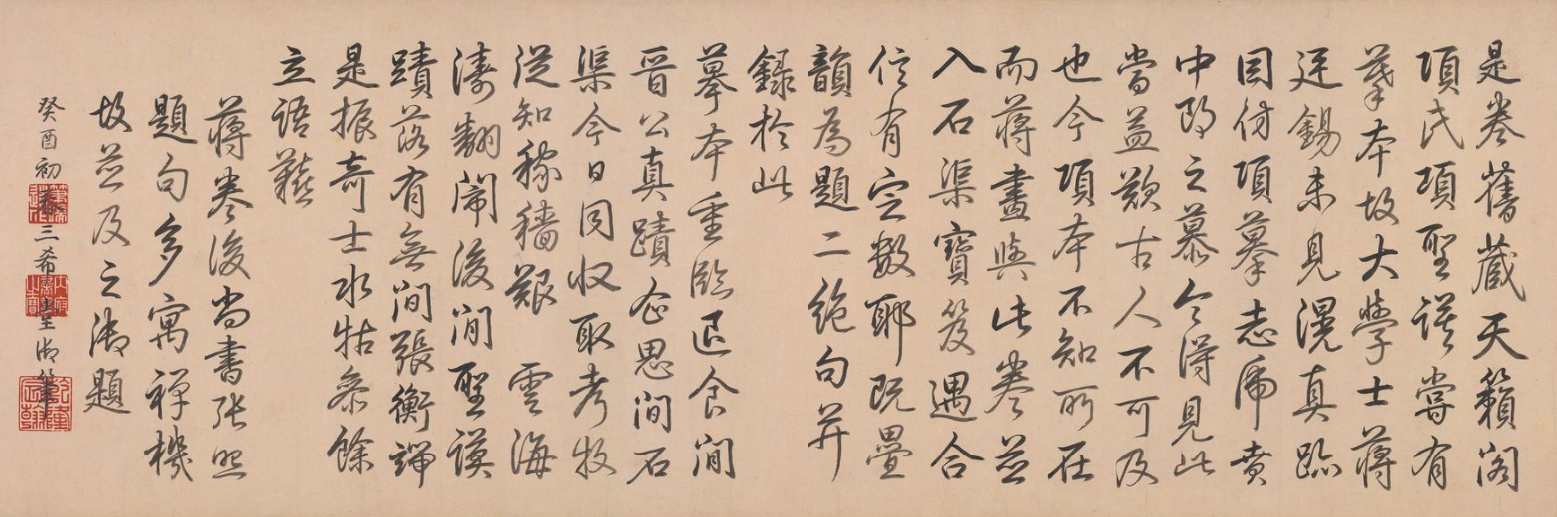 是卷舊藏天籟閣
項氏項聖謨嘗有
摹本故大學士蔣
廷錫未見滉真跡
因仿項摹志虎賁
中郎之慕今得見此
當益歎古人不可及
也今項本不知所在
而蔣畫與此卷並
入石渠寶笈遇合
信有定數耶既疊
韻為題二絕句并
錄於此
摹本重臨退食間
晉公真蹟企思間石
渠今日同收取考牧
從知稼穡艱 雲海
濤翻鬧後閒聖謨
蹟落有無間張衡端
是振奇士水牯參餘
立語艱
蔣卷後尚書張照
題句多寓禪機
故並及之御題
癸酉初春三希堂御筆
乾隆宸翰